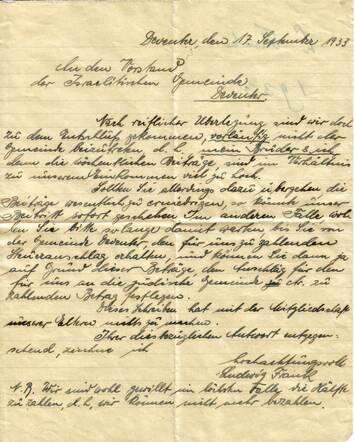 Deventer, den 17. September 1933
An den Vorstand
der Israelitischen Gemeinde
Deventer.
Nach reiflicher Überlegung sind wir doch
zu dem Entschluß gekommen, vorläufig nicht der
Gemeinde beizutreten d.h. mein Bruder & ich,
denn die wöchentlichen Beiträge sind im Verhältnis
zu unserem Einkommen viel zu hoch.
Sollten Sie allerdings dazu übergehen die
Beiträge wesentlich zu erniedrigen, so könnte unser
Beitritt sofort geschehen. Im anderen Falle wol-
len Sie bitte so lange damit warten bis Sie von
der Gemeinde Deventer, den für uns zu zahlenden
Steueranschlag erhalten, und können Sie dann ja
auf Grund dieser Beträge den Anschlag für den
für uns an die jüdische Gemeinde zu
zahlenden Betrag festlegen.
Dieses Schreiben hat mit der Mitgliedschaft
unserer Eltern nichts zu machen.
Ihrer diesbezüglichen Antwort entgegen-
sehend, zeichne ich
Hochachtungsvoll
Ludwig Frank
N.B. Wir sind wohl gewillt im Falle die Hälfte
zu zahlen, d.h. wir können nicht mehr bezahlen.